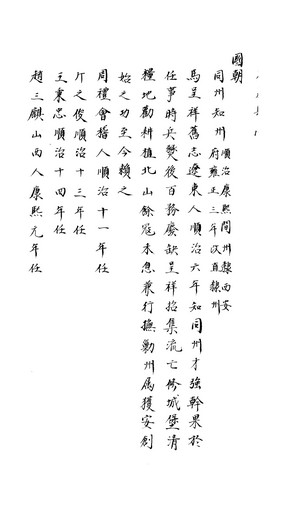 國朝
同州知州順治康熙間州隸西安府雍正三年改直隸州
馬呈祥舊志遼東人順治六年知同州才強幹果於
任事時兵燹後百務廢缺呈祥招集流亡修城堡清
糧地勸耕植北山餘冦未息兼行撫勦州属獲安創
始之功至今賴之
周禮會稽人順治十一年任
之俊順治十三年任
王秉忠順治十四年任
趙三麒山西人康熙元年任